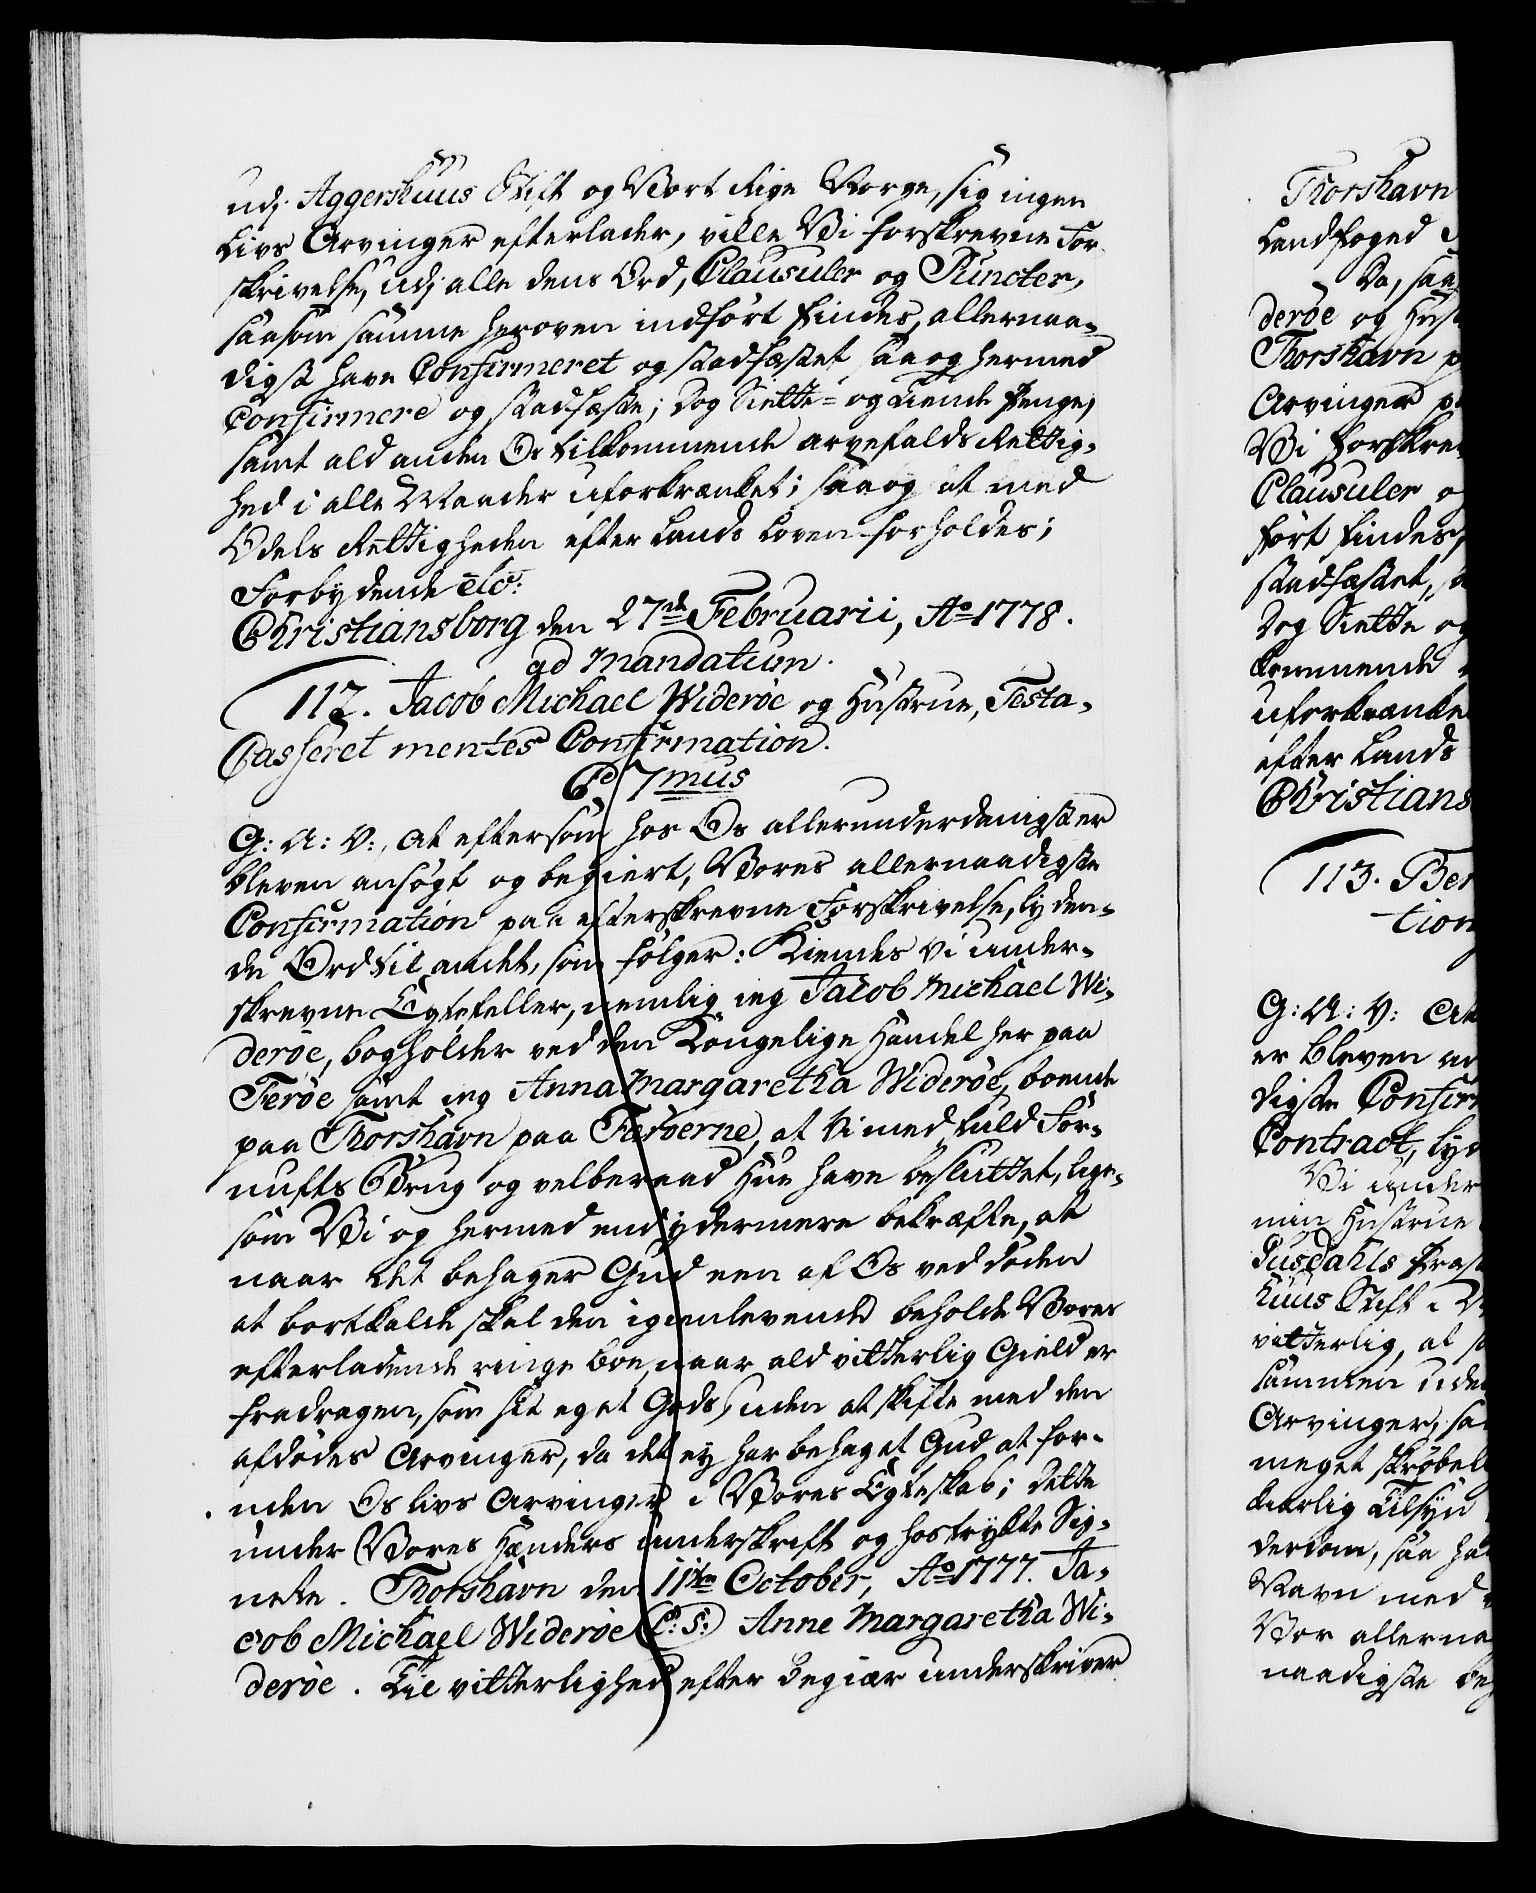 udj Aggershuus Stift og Vort Rige Norge, sig ingen
Livs Arvinger efterlader, ville Vi forskrevne For-
skrivelse, udj alle dens Ord, Clausuler og Puncter,
saasom samme heroven indført findes, allernaa-
digst have Confirmeret og stadfæstet, saa og hermed
Confirmere og stadfæste; Dog Siette- og Tiende Penge,
samt ald anden Os tilkommende arvefalds Rettig-
hed i alle Maader uforkrænket; saa og at med
Odels Rettigheden efter Lands Loven forholdes;
Forbydende etc:
Christiansborg den 27de Februarii, Ao 1778.
ad Mandatum.
112. Jacob Michael Widerøe og Hustrue, Testa-
Casseret mentes Confirmation.
C 7mus
G: A: V:, at eftersom hos Os allerunderdanigst er
bleven ansøgt og begiert, Vores allernaadigste
Confirmation paa efterskrevne Forskrivelse, lyden-
de Ord til andet, som følger: Kiendes vi under-
skrevne Egtefeller, nemlig ieg Jacob Michael Wi-
derøe, bogholder ved den Kongelige Handel her paa
Ferøe samt ieg Anna Margaretha Widerøe, boende
paa Thorshavn paa Færøerne, at Vi med fuld For-
nufts Brug og velberaad Hue have besluttet, lige-
som Vi og hermed end ydermere bekræfte, at
naar det behager Gud een af Os ved døden
at bortkalde skal den igienlevende beholde Vores
efterladende ringe boe, naar ald vitterlig Gield er
fradragen, som sit eget Gods, uden at skifte med den
afdødes Arvinger, da det ey har behaget Gud at for-
unde Os livs Arvinger i Vores Egteskab; dette
under Vores Hænders underskrift og hostrykte Sig-
nete. Thorshavn den 11te October, Ao 1777. Ja-
cob Michael Widerøe (L: S:) Anne Margaretha Wi-
derøe. Til vitterlighed efter begiær underskriver
Thorshavn
Landfoged
Da, saa
derøe og Hust
Thorshavn p
Arvinger
Vi forskre
Clausuler o
ført findes,
stadfæstet,
Dog Siette og
kommende
uforkrænke
efter Lands
Christians
113. Ber
tion
G: A: V: At
er bleven an
digste Confir
Contract, lyd
Vi under
min Hustrue
Gusdahls Præst
huus Stift i
vitterlig, at
sammen uden
Arvinger, sa
meget skrøbel
kierlig Tilsyn
derdom, saa ha
Navn med
Vor allerna
naadigste beg